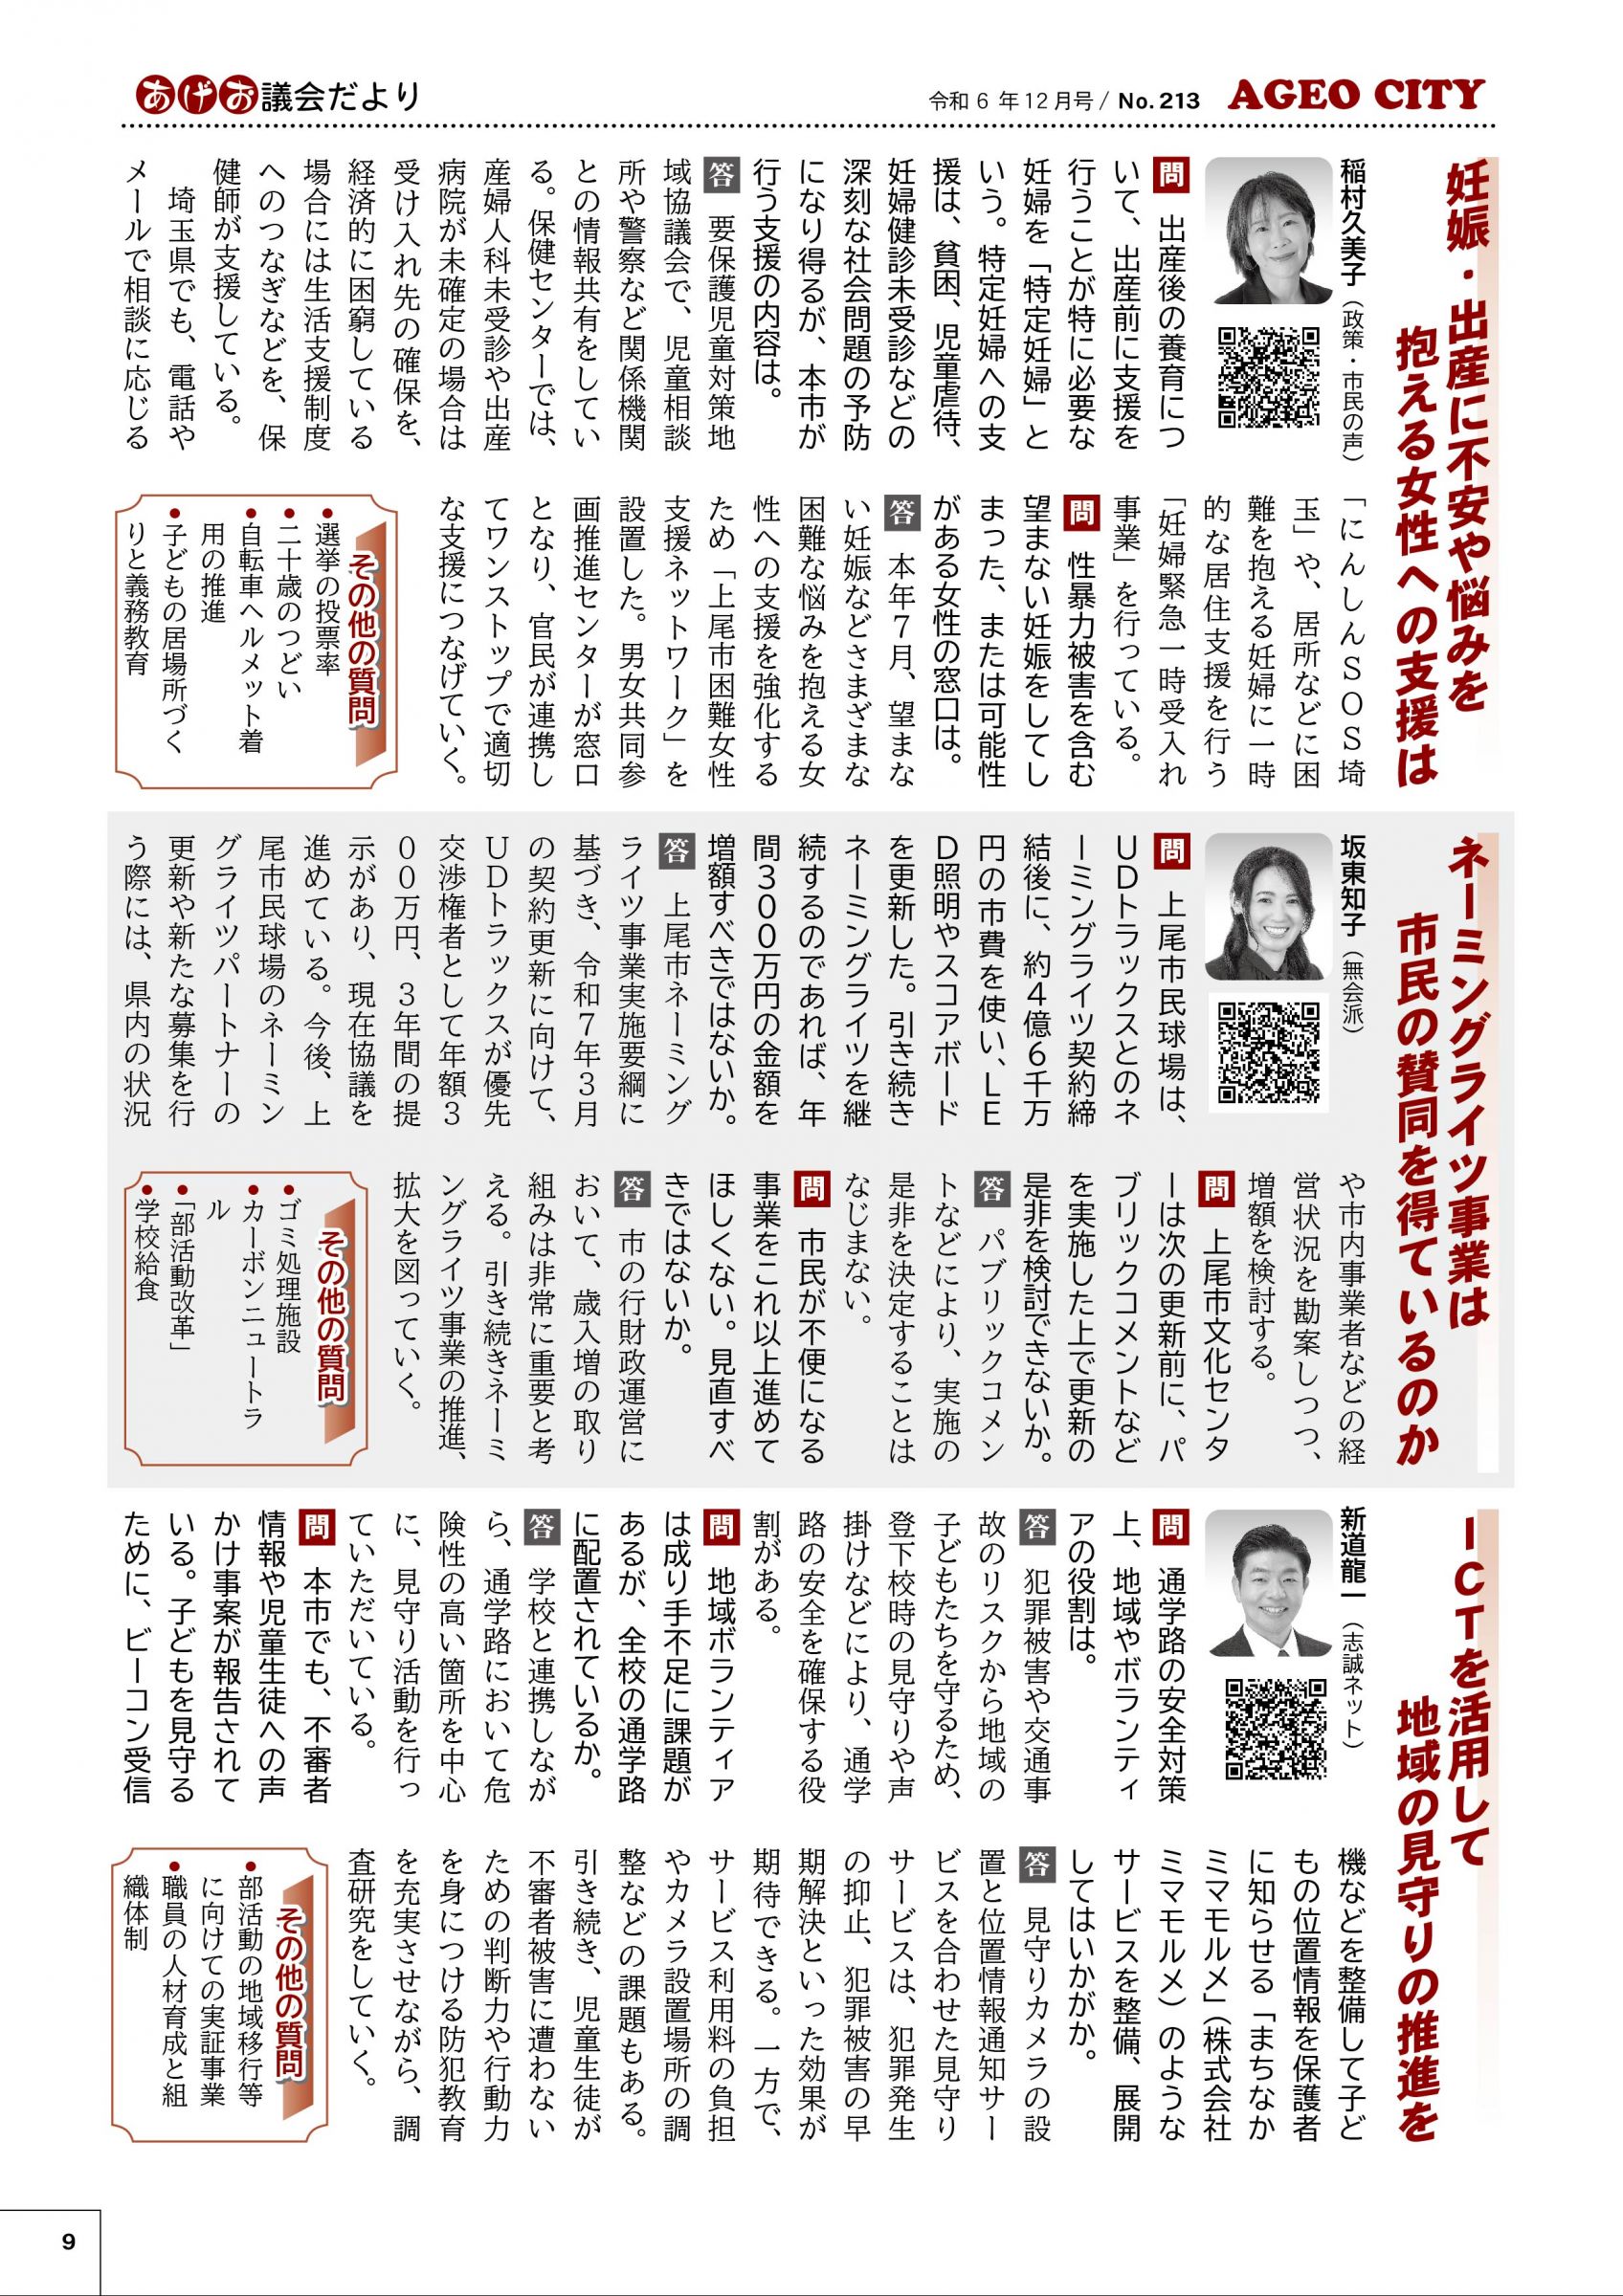 あげお議会だより
令和6年12月号/ No.213 AGEO CITY
妊娠・出産に不安や悩みを
抱える女性への支援は
稲村久美子（政策・市民の声）
問　出産後の養育につ
いて、出産前に支援を
行うことが特に必要な
妊婦を「特定妊婦」と
いう。特定妊婦への支
援は、貧困、児童虐待、
妊婦健診未受診などの
深刻な社会問題の予防
になり得るが、本市が
行う支援の内容は。
答　要保護児童対策地
域協議会で、児童相談
所や警察など関係機関
との情報共有をしてい
る。保健センターでは、
産婦人科未受診や出産
病院が未確定の場合は
受け入れ先の確保を、
経済的に困窮している
場合には生活支援制度
へのつなぎなどを、保
健師が支援している。
　埼玉県でも、電話や
メールで相談に応じる
「にんしんＳＯＳ埼
玉」や、居所などに困
難を抱える妊婦に一時
的な居住支援を行う
「妊婦緊急一時受入れ
事業」を行っている。
問　性暴力被害を含む
望まない妊娠をしてし
まった、または可能性
がある女性の窓口は。
答　本年７月、望まな
い妊娠などさまざまな
困難な悩みを抱える女
性への支援を強化する
ため「上尾市困難女性
支援ネットワーク」を
設置した。男女共同参
画推進センターが窓口
となり、官民が連携し
てワンストップで適切
な支援につなげていく。
その他の質問
●選挙の投票率
●二十歳のつどい
●自転車ヘルメット着
用の推進
●子どもの居場所づく
りと義務教育
ネーミングライツ事業は
市民の賛同を得ているのか
坂東知子（無会派）
問　上尾市民球場は、
ＵＤトラックスとのネ
ーミングライツ契約締
結後に、約４億６千万
円の市費を使い、ＬＥ
Ｄ照明やスコアボード
を更新した。引き続き
ネーミングライツを継
続するのであれば、年
間３００万円の金額を
増額すべきではないか。
答　上尾市ネーミング
ライツ事業実施要綱に
基づき、令和７年３月
の契約更新に向けて、
ＵＤトラックスが優先
交渉権者として年額３
００万円、３年間の提
示があり、現在協議を
進めている。今後、上
尾市民球場のネーミン
グライツパートナーの
更新や新たな募集を行
う際には、県内の状況
や市内事業者などの経
営状況を勘案しつつ、
増額を検討する。
問　上尾市文化センタ
ーは次の更新前に、パ
ブリックコメントなど
を実施した上で更新の
是非を検討できないか。
答　パブリックコメン
トなどにより、実施の
是非を決定することは
なじまない。
問　市民が不便になる
事業をこれ以上進めて
ほしくない。見直すべ
きではないか。
答　市の行財政運営に
おいて、歳入増の取り
組みは非常に重要と考
える。引き続きネーミ
ングライツ事業の推進、
拡大を図っていく。
その他の質問
●ゴミ処理施設
●カーボンニュートラ
ル
●「部活動改革」
●学校給食
ＩＣＴを活用して
地域の見守りの推進を
新道龍一（志誠ネット）
問　通学路の安全対策
上、地域やボランティ
アの役割は。
答　犯罪被害や交通事
故のリスクから地域の
子どもたちを守るため、
登下校時の見守りや声
掛けなどにより、通学
路の安全を確保する役
割がある。
問　地域ボランティア
は成り手不足に課題が
あるが、全校の通学路
に配置されているか。
答　学校と連携しなが
ら、通学路において危
険性の高い箇所を中心
に、見守り活動を行っ
ていただいている。
問　本市でも、不審者
情報や児童生徒への声
かけ事案が報告されて
いる。子どもを見守る
ために、ビーコン受信
機などを整備して子ど
もの位置情報を保護者
に知らせる「まちなか
ミマモルメ」（株式会社
ミマモルメ）のような
サービスを整備、展開
してはいかがか。
答　見守りカメラの設
置と位置情報通知サー
ビスを合わせた見守り
サービスは、犯罪発生
の抑止、犯罪被害の早
期解決といった効果が
期待できる。一方で、
サービス利用料の負担
やカメラ設置場所の調
整などの課題もある。
引き続き、児童生徒が
不審者被害に遭わない
ための判断力や行動力
を身につける防犯教育
を充実させながら、調
査研究をしていく。
その他の質問
●部活動の地域移行等
に向けての実証事業
●職員の人材育成と組
織体制
9